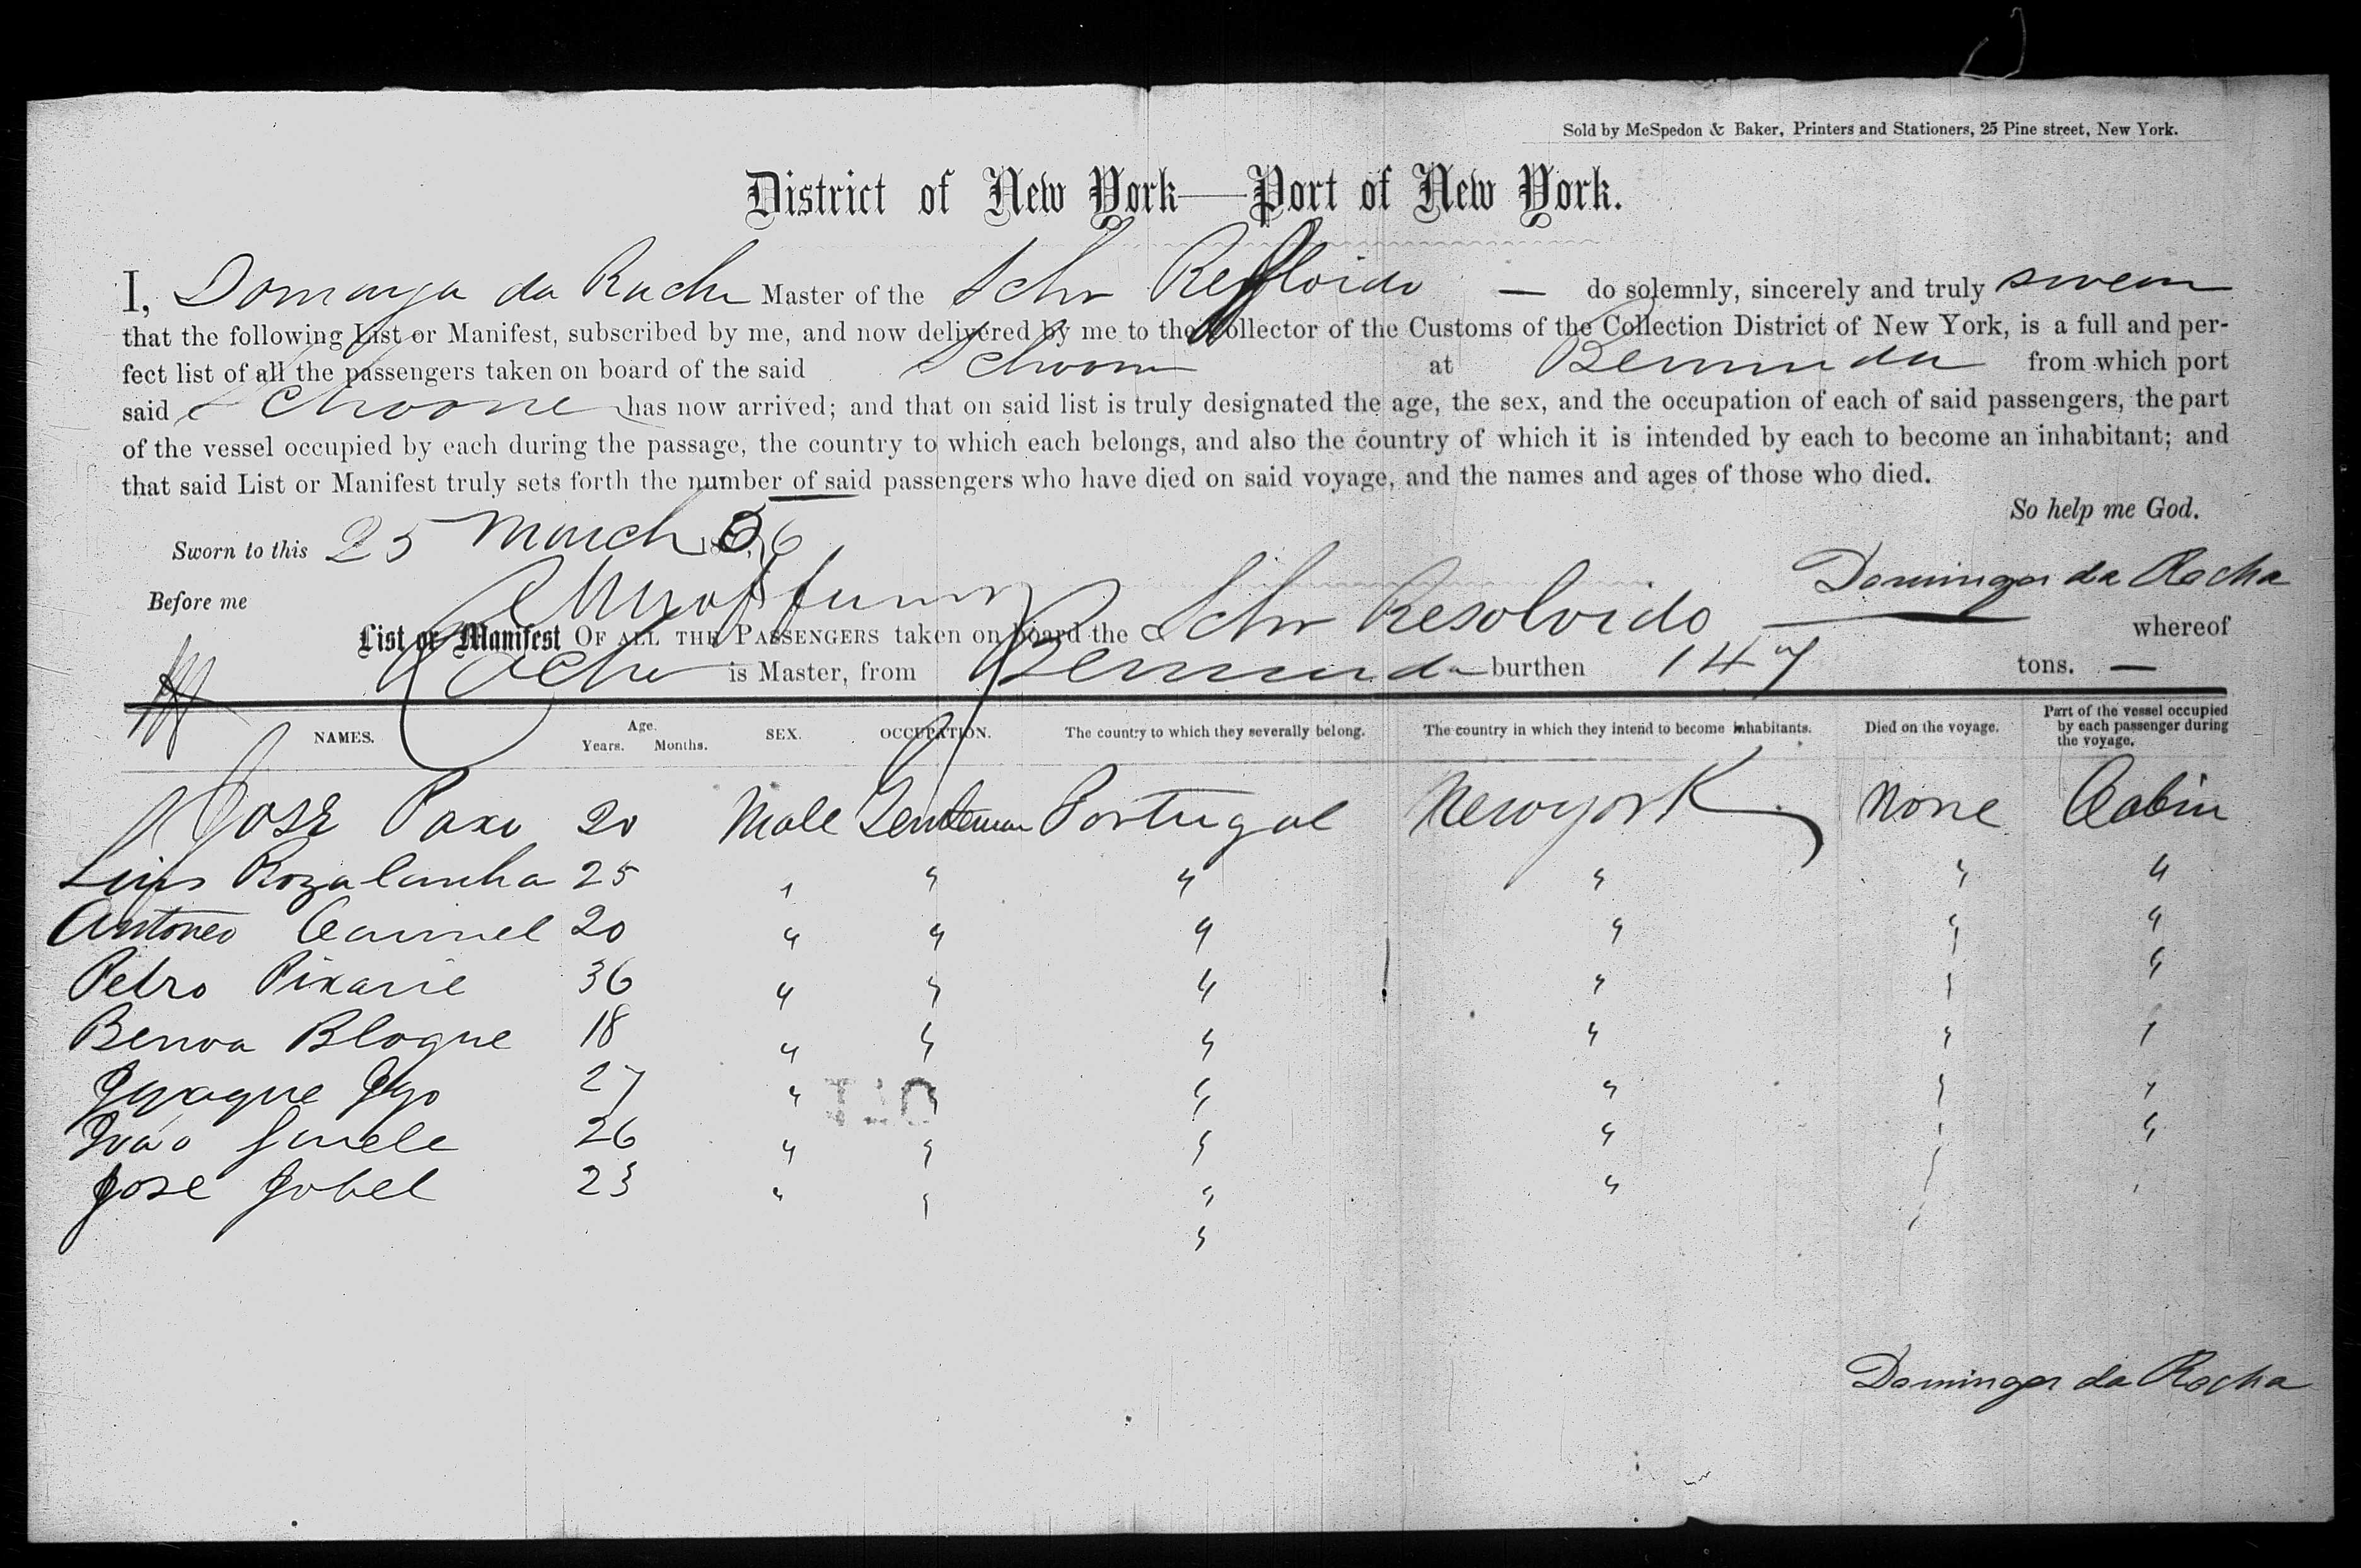 Sold by McSpedon & Baker, Printers and Stationers, 25 Pine street, New York.
District of New York—Port of New York.
I, da Rocha Master of the Schr — do solemnly, sincerely and truly swear
that the following List or Manifest, subscribed by me, and now delivered by me to the Collector of the Customs of the Collection District of New York, is a full and per-
fect list of all the passengers taken on board of the said at Bermuda from which port
said has now arrived; and that on said list is truly designated the age, the sex, and the occupation of each of said passengers, the part
of the vessel occupied by each during the passage, the country to which each belongs, and also the country of which it is intended by each to become an inhabitant; and
that said List or Manifest truly sets forth the number of said passengers who have died on said voyage, and the names and ages of those who died.
So help me God.
Sworn to this 25 March 1856
Domingos da Rocha
Before me
List or Manifest OF ALL THE PASSENGERS taken on board the Schr Resolvido whereof
Rocha is Master, from Bermuda burthen 147 tons. —
NAMES. Age. Years. Months. SEX. OCCUPATION. The country to which they severally belong. The country in which they intend to become inhabitants. Died on the voyage. Part of the vessel occupied by each passenger during the voyage.
Jose 20 Male Gentleman Portugal New york None Cabin
Luis 25 " " " " " "
Antoneo 20 " " " " " "
Petro Pixarie 36 " " " " " "
Benoa Blogue 18 " " " " " "
27 " " " " " "
Joao 26 " " " " " "
Jose Jobel 23 " " " " " "
"
Domingos da Rocha